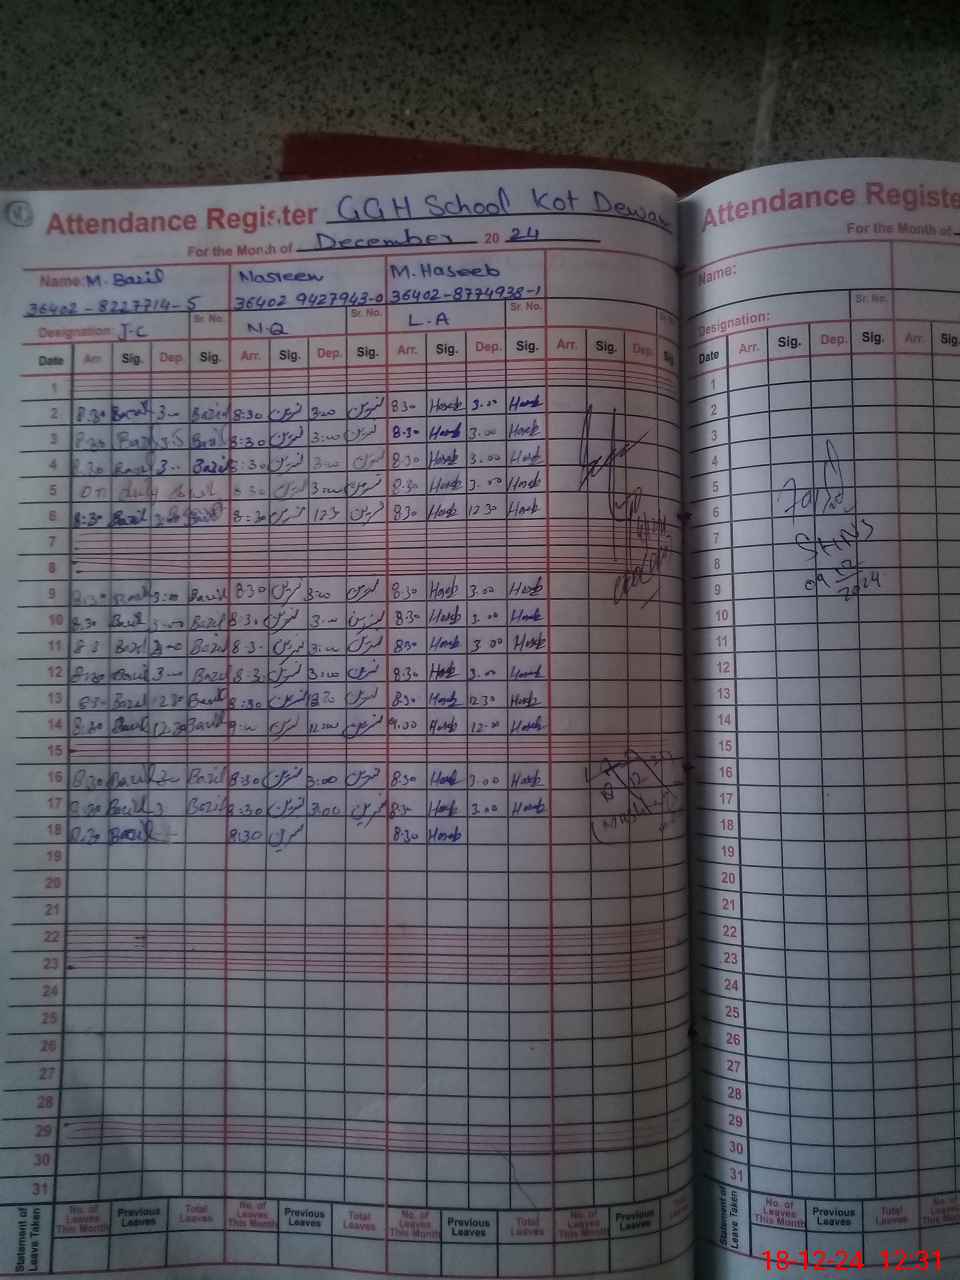 Attendance Register GGH School Kot Dewan
For the Month of December 20 24
Name: M. Bazil Nasreen M. Haseeb
36402-8227714-5 36402 9427943-0 36402-8774938-1
Designation: J-C Sr. No. N-Q Sr. No. L-A Sr. No.
Date Arr. Sig. Dep. Sig. Arr. Sig. Dep. Sig. Arr. Sig. Dep. Sig. Arr. Sig. Dep. Sig
1
2 8.30 Bazil 3.00 Bazil 8:30 نسرین 3:00 نسرین 8.30 Haseb 3.00 Haseb
3 8.30 Bazil Bazil 8:30 نسرین 3:00 نسرین 8.30 Haseb 3.00 Haseb
4 8.30 Bazil 3.00 Bazil 8:30 نسرین 3:00 نسرین 8.30 Haseb 3.00 Haseb
5 On duty Bazil 8:30 نسرین 3:00 نسرین 8.30 Haseb 3.00 Haseb
6 8:30 Bazil Bazil 8:30 نسرین 12:30 نسرین 8.30 Haseb 12.30 Haseb
7
8
9 8:30 Bazil 3:00 Bazil 8:30 نسرین 3:00 نسرین 8.30 Haseb 3.00 Haseb
10 8.30 Bazil 3.00 Bazil 8:30 نسرین 3:00 نسرین 8.30 Haseb 3.00 Haseb
11 8.3 Bazil 3.00 Bazil 8.3 نسرین 3:00 نسرین 8.30 Haseb 3.00 Haseb
12 8.30 Bazil 3.00 Bazil 8.3 نسرین 3:00 نسرین 8.30 Haseb 3.00 Haseb
13 Bazil 12.30 Bazil 8:30 نسرین 12:30 نسرین 8.30 Haseb 12.30 Haseb
14 8.30 Bazil 12.30 Bazil 9:00 نسرین 12:00 نسرین 9.00 Haseb 12.00 Haseb
15
16 8.30 Bazil Bazil 8:30 نسرین 3:00 نسرین 8.30 Haseb 3.00 Haseb
17 8.30 Bazil 3 Bazil 8:30 نسرین 3:00 نسرین 8.30 Haseb 3.00 Haseb
18 8.30 Bazil 8:30 نسرین 8.30 Haseb
19
20
21
22
23
24
25
26
27
28
29
30
31
Statement of Leave Taken
No. of Leaves This Month Previous Leaves Total Leaves No. of Leaves This Month Previous Leaves Total Leaves No. of Leaves This Month Previous Leaves Total Leaves No. of Leaves This Month Previous Leaves
Attendance Registe
For the Month of
Name:
Sr. No.
Designation:
Date Arr. Sig. Dep. Sig. Arr. Sig.
1
2
3
4
5
6
7
SHNS
8
9
09 12 2024
10
11
12
13
14
15
16
17
18
19
20
21
22
23
24
25
26
27
28
29
30
31
Statement of Leave Taken
No. of Leaves This Month Previous Leaves Total Leaves No. of Leaves This Mon
18-12-24 12:31